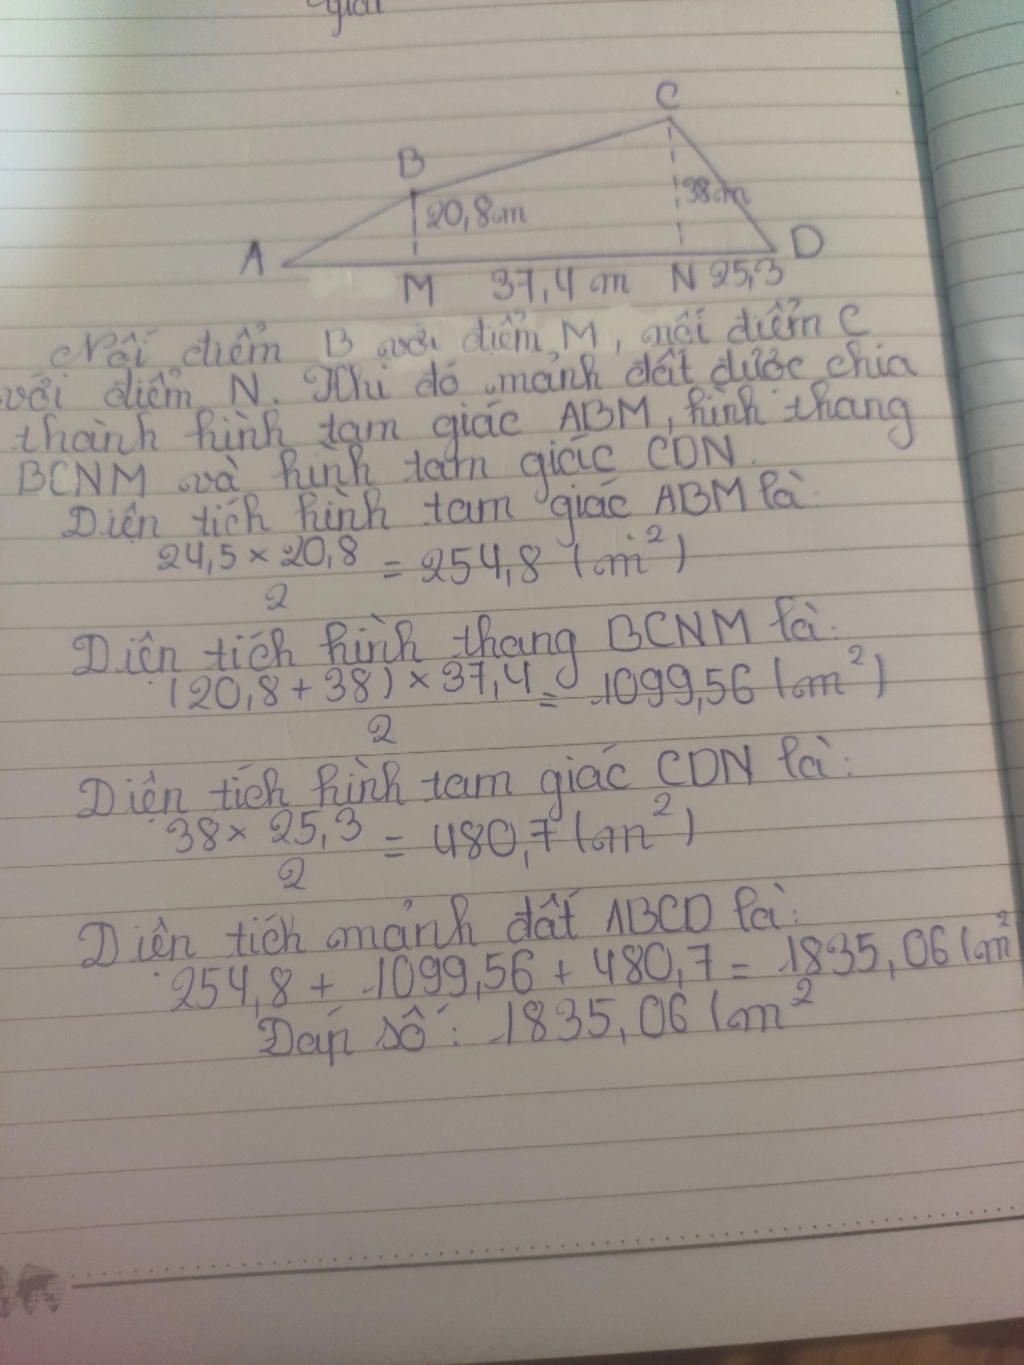 giải
C
B
38m
20,8m
A
D
M 37,4 m N 25,3
Nối điểm B với điểm M, nối điểm C
với điểm N. Khi đó mảnh đất được chia
thành hình tam giác ABM, hình thang
BCNM và hình tam giác CDN.
Diện tích hình tam giác ABM là:
24,5 × 20,8
= 254,8 (m²)
2
Diện tích hình thang BCNM là:
(20,8 + 38) × 37,4
= 1099,56 (m²)
2
Diện tích hình tam giác CDN là:
38 × 25,3
= 480,7 (m²)
2
Diện tích mảnh đất ABCD là:
254,8 + 1099,56 + 480,7 = 1835,06 (m²
Đáp số: 1835,06 (m²